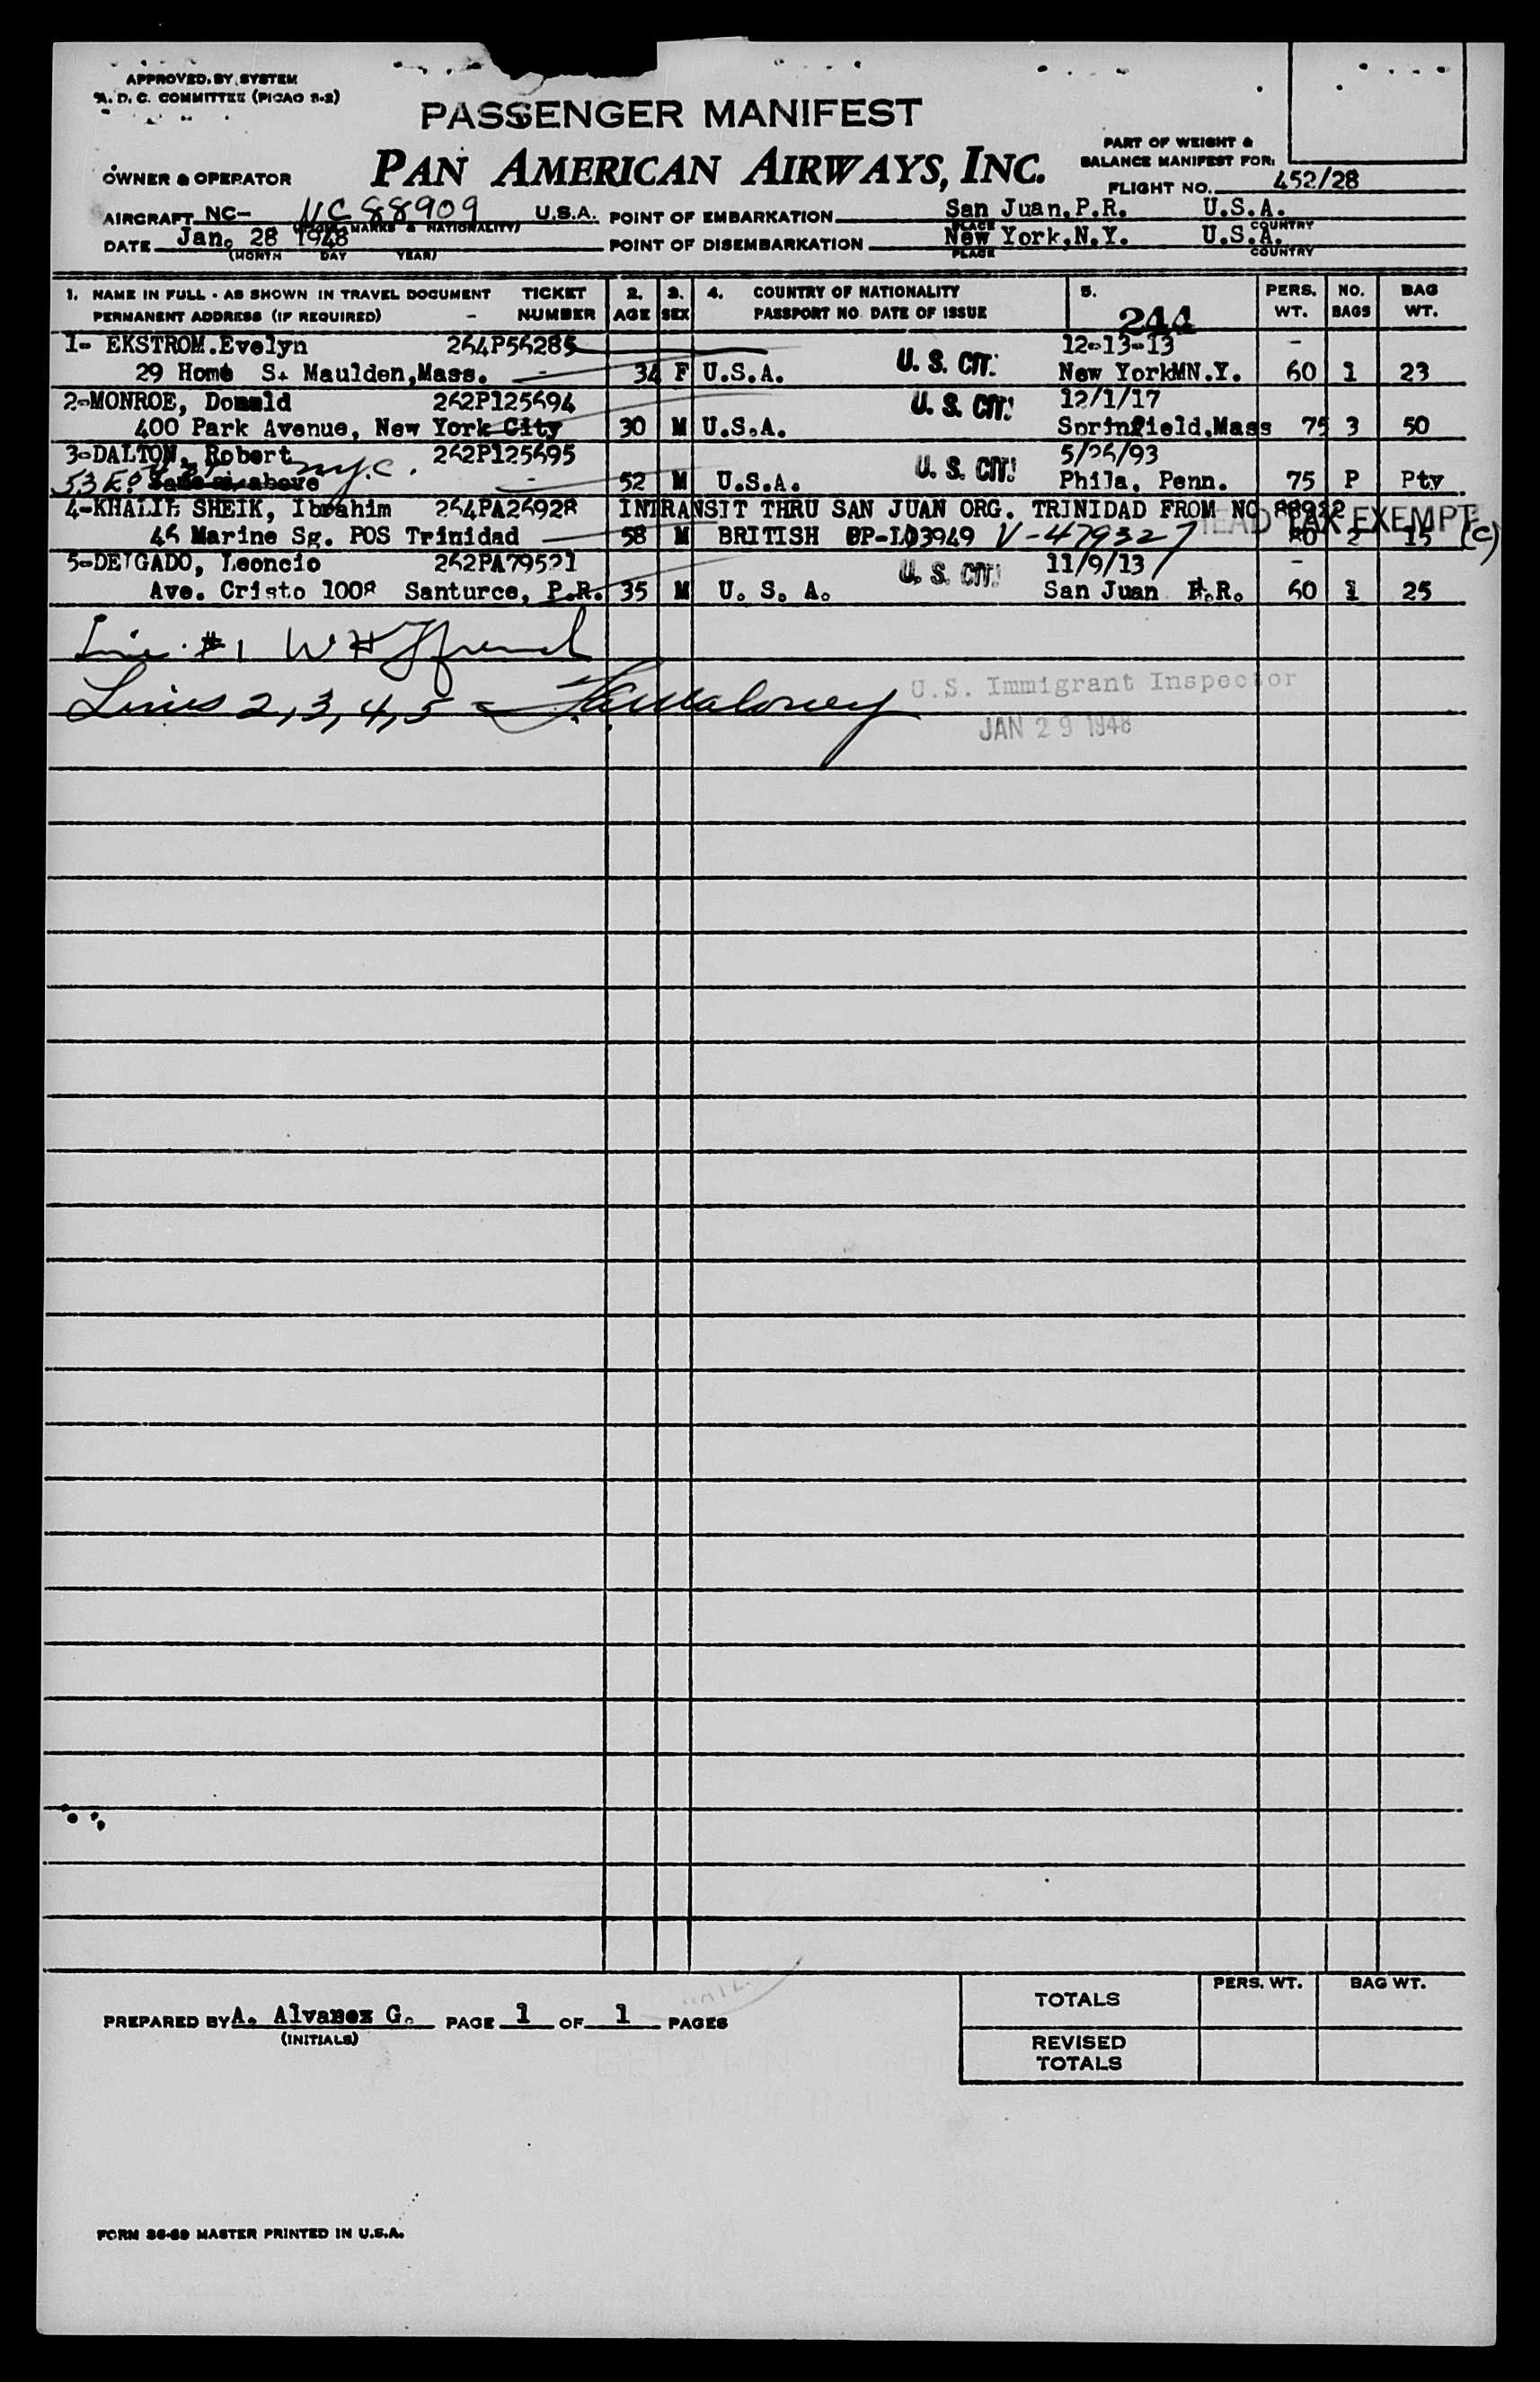 APPROVED BY SYSTEM
A. D. C. COMMITTEE (PICAO 8-2)
PASSENGER MANIFEST
PART OF WEIGHT &
BALANCE MANIFEST FOR:
OWNER & OPERATOR PAN AMERICAN AIRWAYS, INC.
FLIGHT NO. 452/28
AIRCRAFT NC- NC 88909 U.S.A. POINT OF EMBARKATION San Juan, P.R. U.S.A.
(MARKS & NATIONALITY) PLACE COUNTRY
DATE Jan. 28 1948 POINT OF DISEMBARKATION New York, N.Y. U.S.A.
(MONTH DAY YEAR) PLACE COUNTRY
1. NAME IN FULL - AS SHOWN IN TRAVEL DOCUMENT TICKET 2. 3. 4. COUNTRY OF NATIONALITY 5. PERS. NO. BAG
PERMANENT ADDRESS (IF REQUIRED) - NUMBER AGE SEX PASSPORT NO. DATE OF ISSUE 244 WT. BAGS WT.
1- EKSTROM.Evelyn 264P56285 12-13-13 -
29 Home St Maulden,Mass. - 34 F U.S.A. U. S. CIT. New YorkMN.Y. 60 1 23
2-MONROE, Donald 262P125694 U. S. CIT. 12/1/17
400 Park Avenue, New York City 30 M U.S.A. Springfield,Mass 75 3 50
3-DALTON, Robert 262P125695 5/26/93
53 E. N.Y.C. Same as above - 52 M U.S.A. U. S. CIT. Phila, Penn. 75 P Pty
4-KHALIL SHEIK, Ibrahim 264PA26928 INTRANSIT THRU SAN JUAN ORG. TRINIDAD FROM NC 88922
HEAD TAX EXEMPT (c)
46 Marine Sg. POS Trinidad 58 M BRITISH V-479327 80 2 15
5-DELGADO, Leoncio 262PA79521 U. S. CIT. 11/9/13 -
Ave. Cristo 1008 Santurce, P.R. 35 M U. S. A. San Juan P.R. 60 1 25
Line #1 W H
Lines 2, 3, 4, 5 - Maloney U.S. Immigrant Inspector
JAN 29 1948
PREPARED BY A. Alvarez G. PAGE 1 OF 1 PAGES
(INITIALS)
PERS. WT. BAG WT.
TOTALS
REVISED
TOTALS
FORM 36-69 MASTER PRINTED IN U.S.A.